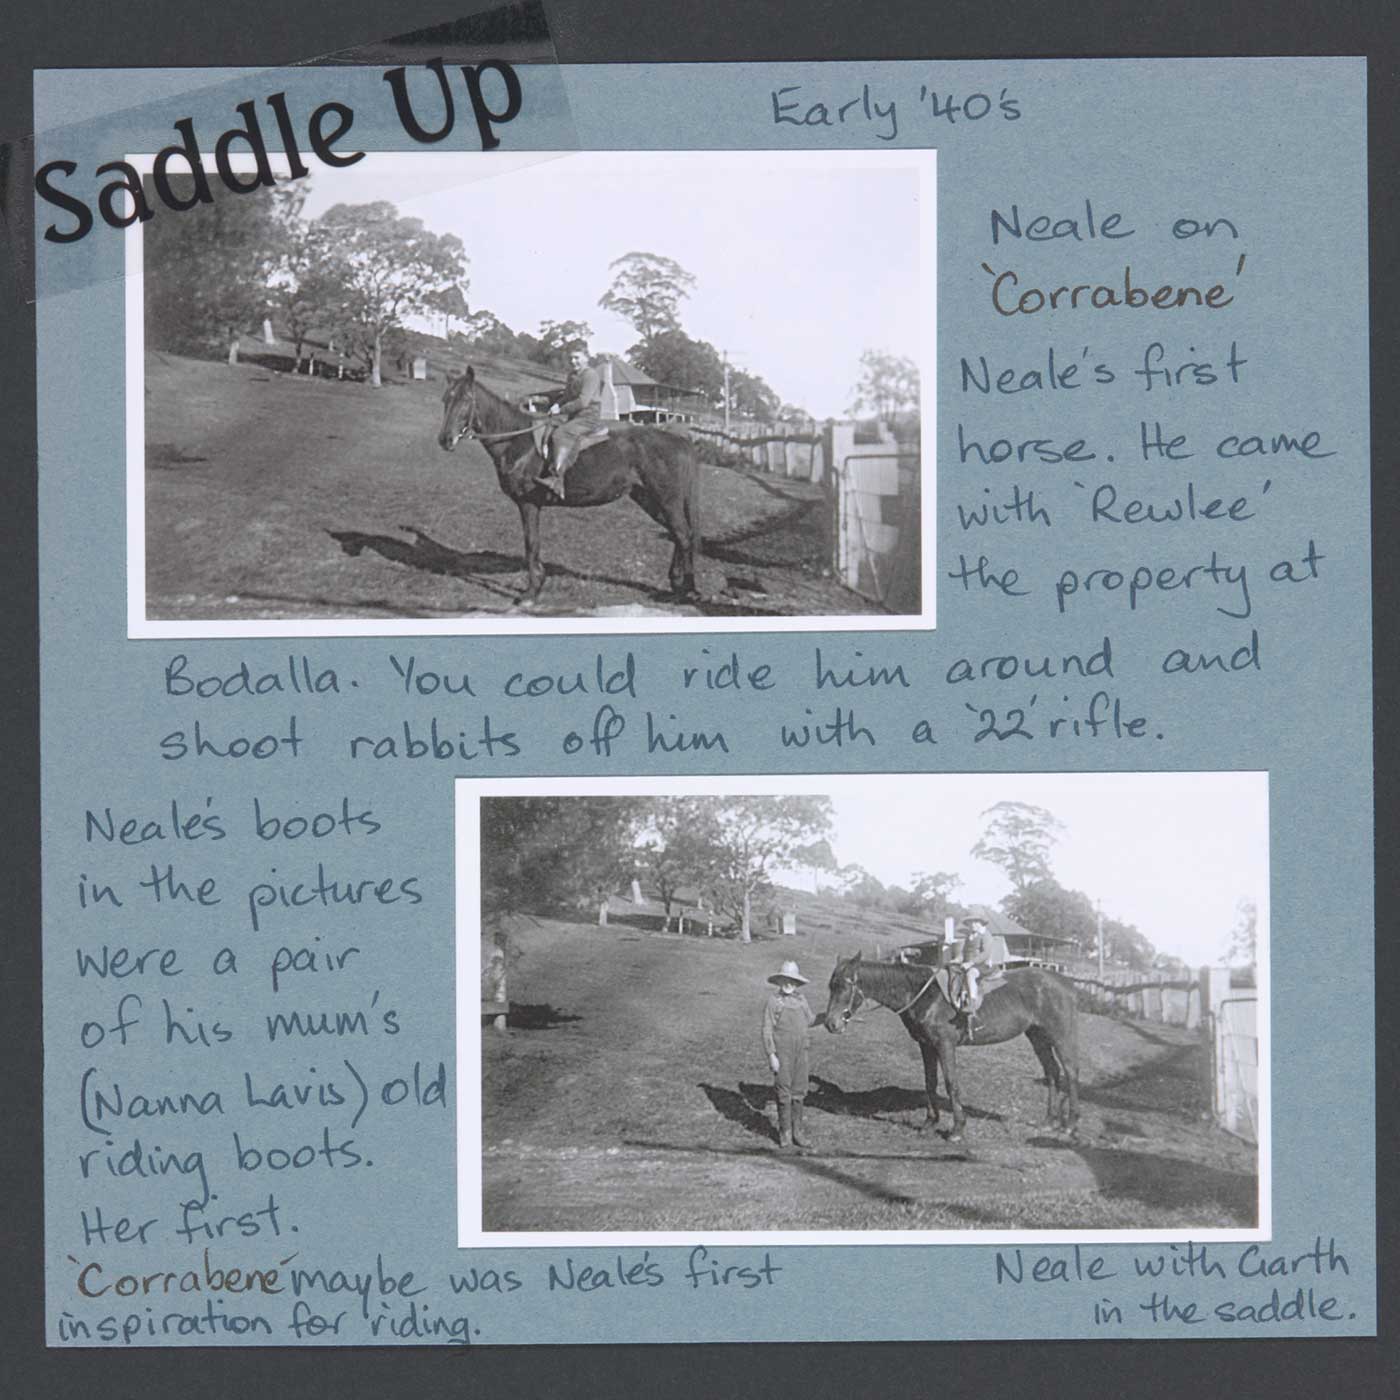 Saddle Up
Early '40's
Neale on
'Corrabene'
Neale's first
horse. He came
with 'Rewlee'
the property at
Bodalla. You could ride him around and
shoot rabbits off him with a '22' rifle.
Neale's boots
in the pictures
were a pair
of his mum's
(Nanna Lavis) old
riding boots.
Her first.
'Corrabene' maybe was Neale's first
inspiration for riding.
Neale with Garth
in the saddle.